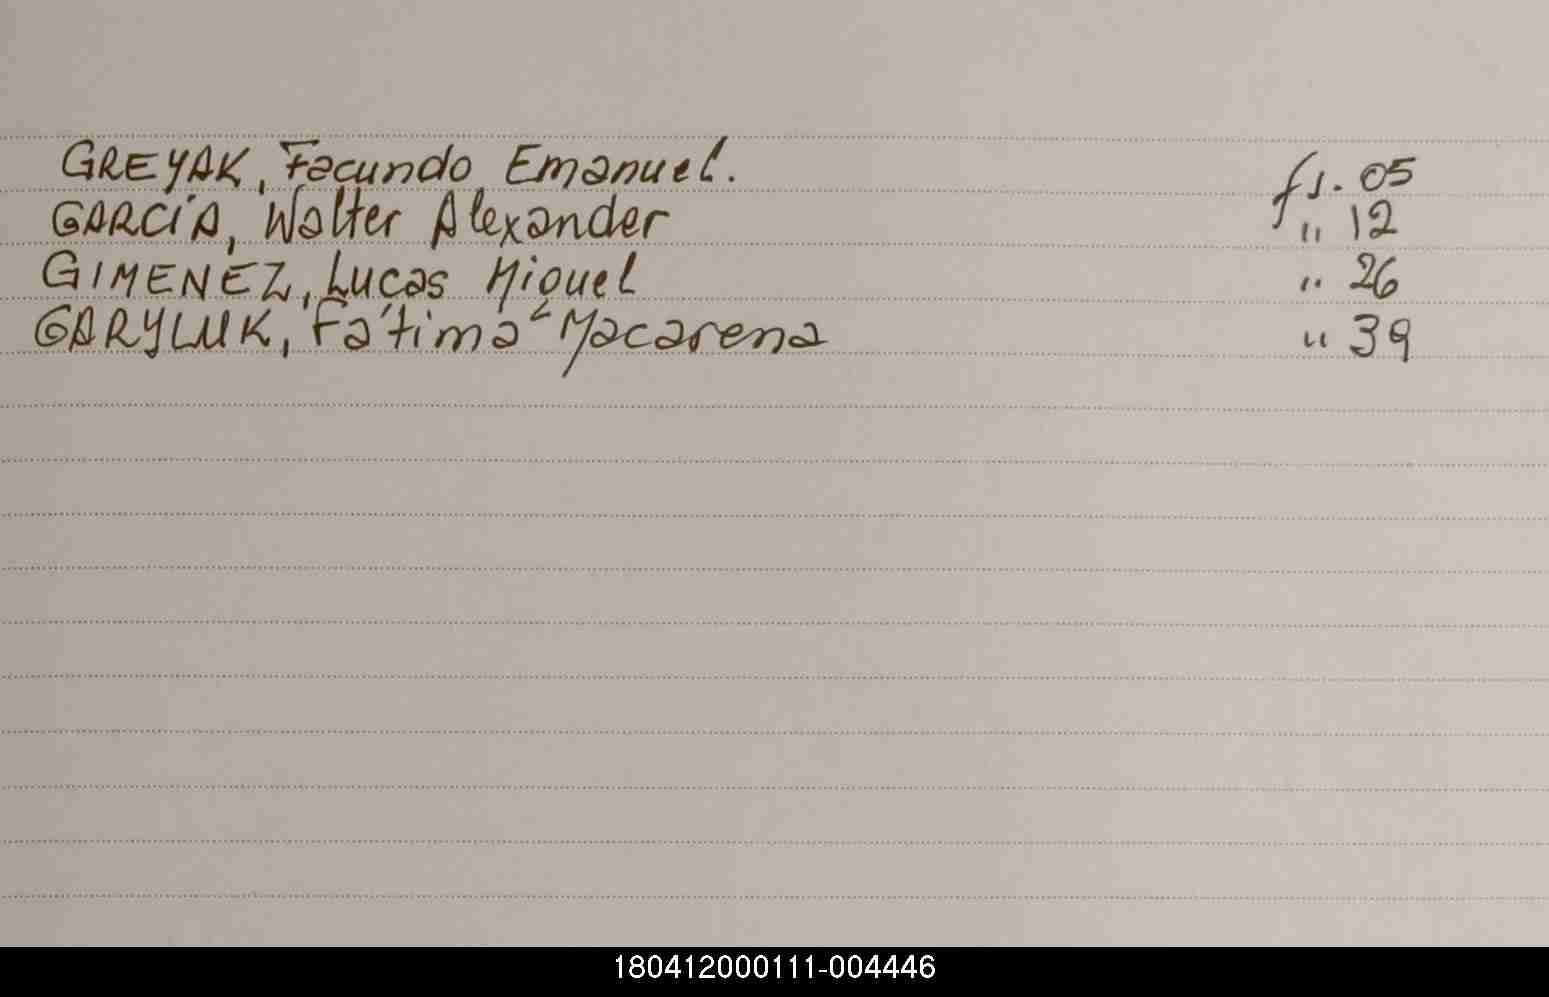 GREYAK, Facundo Emanuel. fs. 05
GARCÍA, Walter Alexander " 12
GIMENEZ, Lucas Miguel " 26
GARYLUK, Fátima Macarena " 39
180412000111-004446